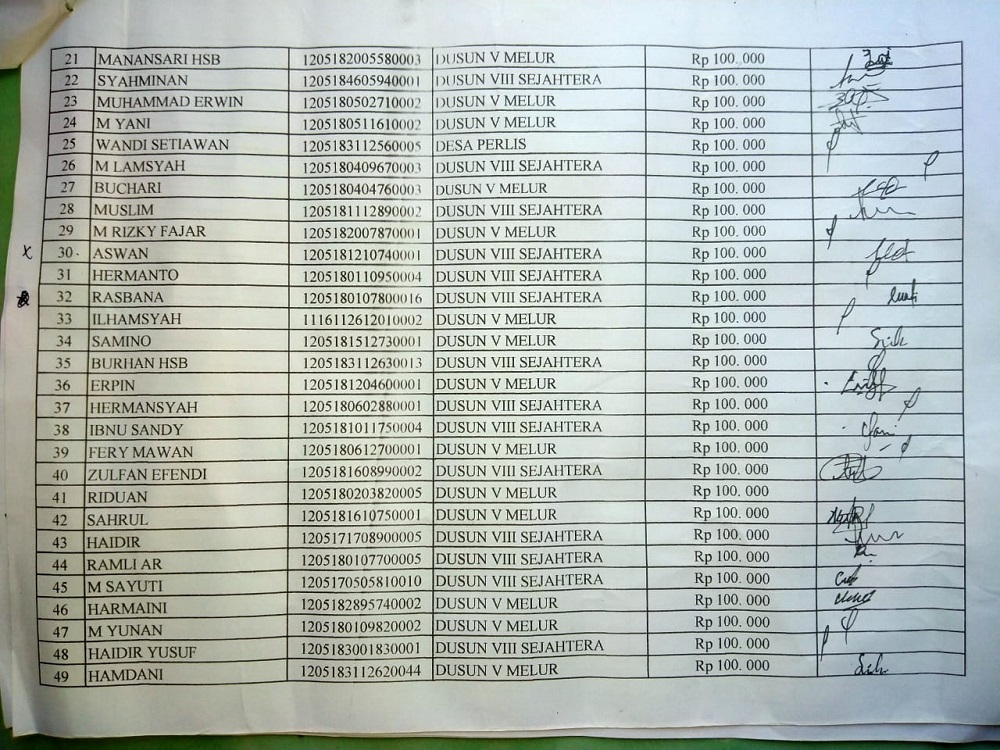 21 MANANSARI HSB 1205182005580003 DUSUN V MELUR Rp 100. 000
22 SYAHMINAN 1205184605940001 DUSUN VIII SEJAHTERA Rp 100. 000
23 MUHAMMAD ERWIN 1205180502710002 DUSUN V MELUR Rp 100. 000
24 M YANI 1205180511610002 DUSUN V MELUR Rp 100. 000
25 WANDI SETIAWAN 1205183112560005 DESA PERLIS Rp 100. 000
26 M LAMSYAH 1205180409670003 DUSUN VIII SEJAHTERA Rp 100. 000
27 BUCHARI 1205180404760003 DUSUN V MELUR Rp 100. 000
28 MUSLIM 1205181112890002 DUSUN VIII SEJAHTERA Rp 100. 000
29 M RIZKY FAJAR 1205182007870001 DUSUN V MELUR Rp 100. 000
x 30 ASWAN 1205181210740001 DUSUN VIII SEJAHTERA Rp 100. 000
31 HERMANTO 1205180110950004 DUSUN VIII SEJAHTERA Rp 100. 000
32 RASBANA 1205180107800016 DUSUN VIII SEJAHTERA Rp 100. 000
33 ILHAMSYAH 1116112612010002 DUSUN V MELUR Rp 100. 000
34 SAMINO 1205181512730001 DUSUN V MELUR Rp 100. 000
35 BURHAN HSB 1205183112630013 DUSUN VIII SEJAHTERA Rp 100. 000
36 ERPIN 1205181204600001 DUSUN V MELUR Rp 100. 000
37 HERMANSYAH 1205180602880001 DUSUN VIII SEJAHTERA Rp 100. 000
38 IBNU SANDY 1205181011750004 DUSUN VIII SEJAHTERA Rp 100. 000
39 FERY MAWAN 1205180612700001 DUSUN V MELUR Rp 100. 000
40 ZULFAN EFENDI 1205181608990002 DUSUN VIII SEJAHTERA Rp 100. 000
41 RIDUAN 1205180203820005 DUSUN V MELUR Rp 100. 000
42 SAHRUL 1205181610750001 DUSUN V MELUR Rp 100. 000
43 HAIDIR 1205171708900005 DUSUN VIII SEJAHTERA Rp 100. 000
44 RAMLI AR 1205180107700005 DUSUN VIII SEJAHTERA Rp 100. 000
45 M SAYUTI 1205170505810010 DUSUN VIII SEJAHTERA Rp 100. 000
46 HARMAINI 1205182895740002 DUSUN V MELUR Rp 100. 000
47 M YUNAN 1205180109820002 DUSUN V MELUR Rp 100. 000
48 HAIDIR YUSUF 1205183001830001 DUSUN VIII SEJAHTERA Rp 100. 000
49 HAMDANI 1205183112620044 DUSUN V MELUR Rp 100. 000